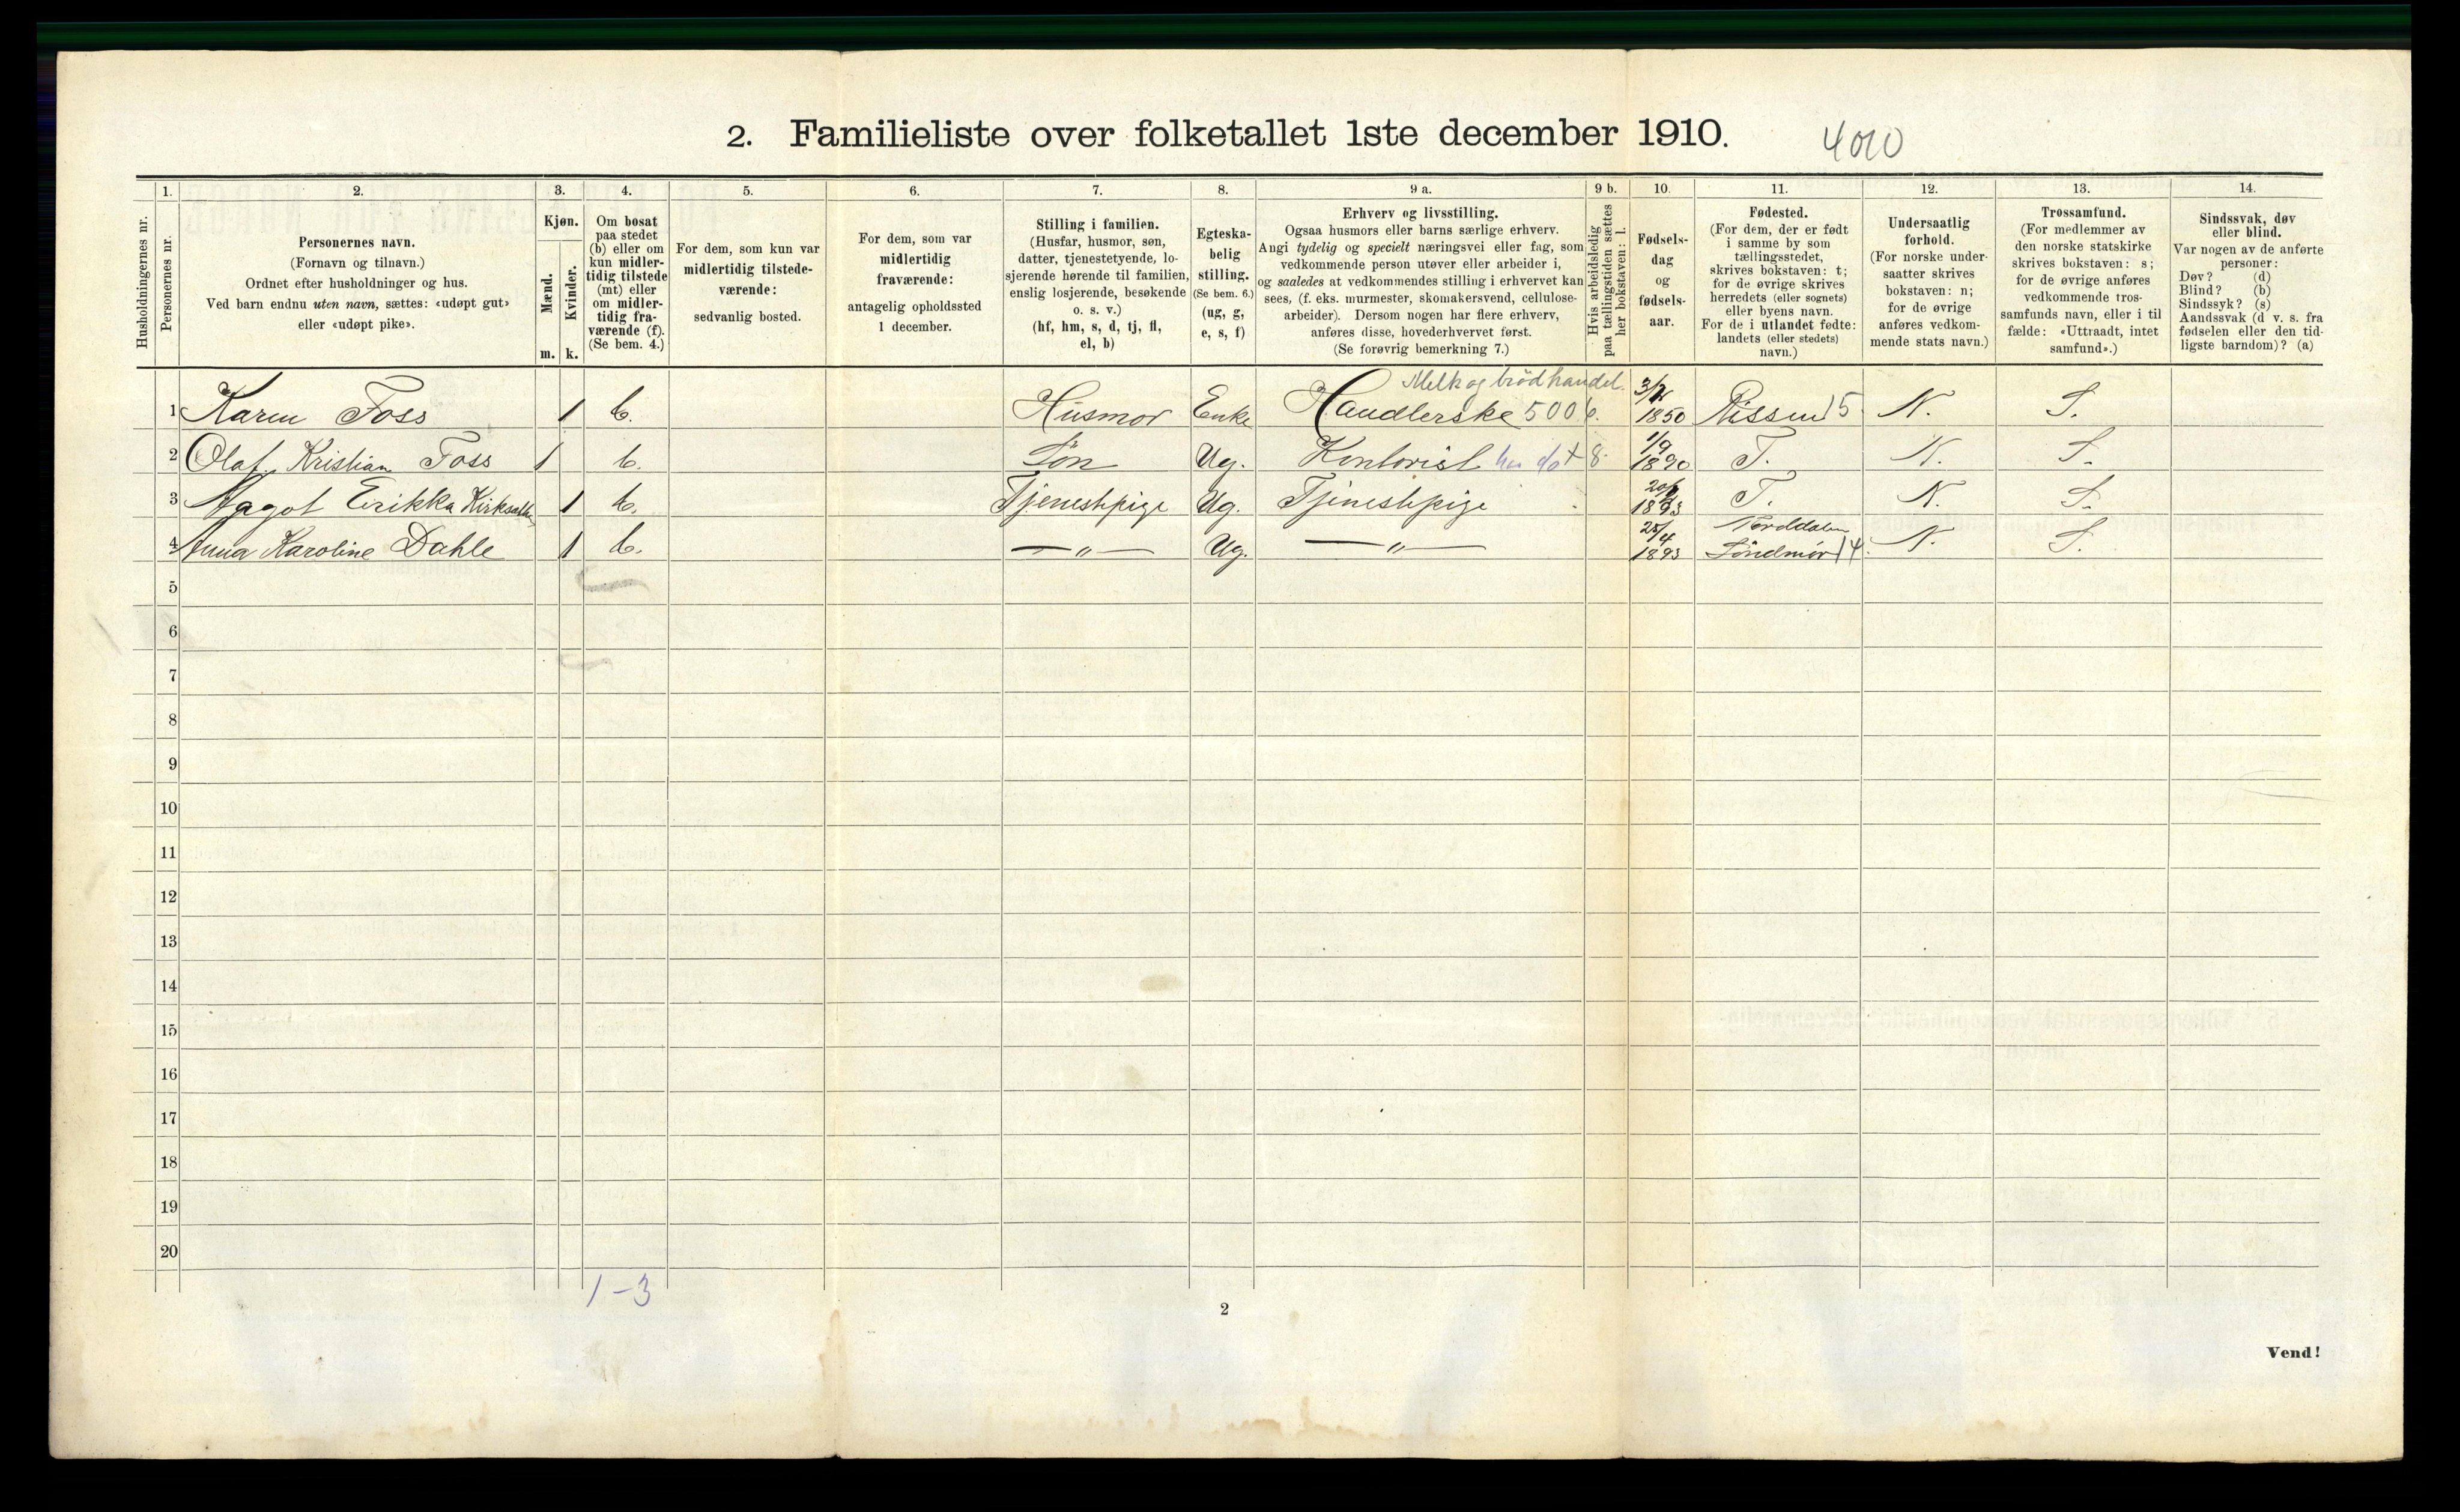 2. Familieliste over folketallet 1ste december 1910.
4010
Husholdningernes nr.
1.
Personernes nr.
2.
Personernes navn.
(Fornavn og tilnavn.)
Ordnet efter husholdninger og hus.
Ved barn endnu uten navn, sættes: «udøpt gut»
eller «udøpt pike».
3.
Kjøn.
Mænd.
Kvinder.
m. k.
4.
Om bosat
paa stedet
(b) eller om
kun midler-
tidig tilstede
(mt) eller
om midler-
tidig fra-
værende (f).
(Se bem. 4.)
5.
For dem, som kun var
midlertidig tilstede-
værende:
sedvanlig bosted.
6.
For dem, som var
midlertidig
fraværende:
antagelig opholdssted
1 december.
7.
Stilling i familien.
(Husfar, husmor, søn,
datter, tjenestetyende, lo-
sjerende hørende til familien,
enslig losjerende, besøkende
o. s. v.)
(hf, hm, s, d, tj, fl,
el, b)
8.
Egteska-
belig
stilling.
(Se bem. 6.)
(ug, g,
e, s, f)
9 a.
Erhverv og livsstilling.
Ogsaa husmors eller barns særlige erhverv.
Angi tydelig og specielt næringsvei eller fag, som
vedkommende person utøver eller arbeider i,
og saaledes at vedkommendes stilling i erhvervet kan
sees, (f. eks. murmester, skomakersvend, cellulose-
arbeider). Dersom nogen har flere erhverv,
anføres disse, hovederhvervet først.
(Se forøvrig bemerkning 7.)
9 b.
Hvis arbeidsledig
paa tællingstiden sættes
her bokstaven: l.
10.
Fødsels-
dag
og
fødsels-
aar.
11.
Fødested.
(For dem, der er født
i samme by som
tællingsstedet,
skrives bokstaven: t;
for de øvrige skrives
herredets (eller sognets)
eller byens navn.
For de i utlandet fødte:
landets (eller stedets)
navn.)
12.
Undersaatlig
forhold.
(For norske under-
saatter skrives
bokstaven: n;
for de øvrige
anføres vedkom-
mende stats navn.)
13.
Trossamfund.
(For medlemmer av
den norske statskirke
skrives bokstaven: s;
for de øvrige anføres
vedkommende tros-
samfunds navn, eller i til
fælde: «Uttraadt, intet
samfund».)
14.
Sindssvak, døv
eller blind.
Var nogen av de anførte
personer:
Døv? (d)
Blind? (b)
Sindssyk? (s)
Aandssvak (d v. s. fra
fødselen eller den tid-
ligste barndom)? (a)
Melk og brödhandel.
1 Karen Foss 1 b. Husmor Enke Handlerske 500 6. 1850 Rissen 15 N. S.
2 Olaf Kristian Foss 1 b. Sön Ug. Kontorist 8. 1/9 1890 T. N. S.
3 Aagot Erikka 1 b. Tjenestpige Ug. Tjenestpige 1893 T. N. S.
4 Anna Karoline Dahle 1 b. — " — Ug. — " — 25/4 1893 Norddalen Söndmör 14. N. S.
5
6
7
8
9
10
11
12
13
14
15
16
17
18
19
20
1-3
2
Vend!